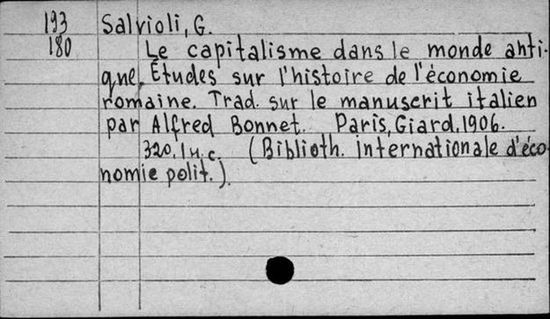 193 Salvioli, G.
180 Le capitalisme dans le monde anti-
que. Études sur l'histoire de l'économie
romaine. Trad. sur le manuscrit italien
par Alfred Bonnet. Paris, Giard, 1906.
320, 1 н. с. (Biblioth. internationale d'éco-
nomie polit.).